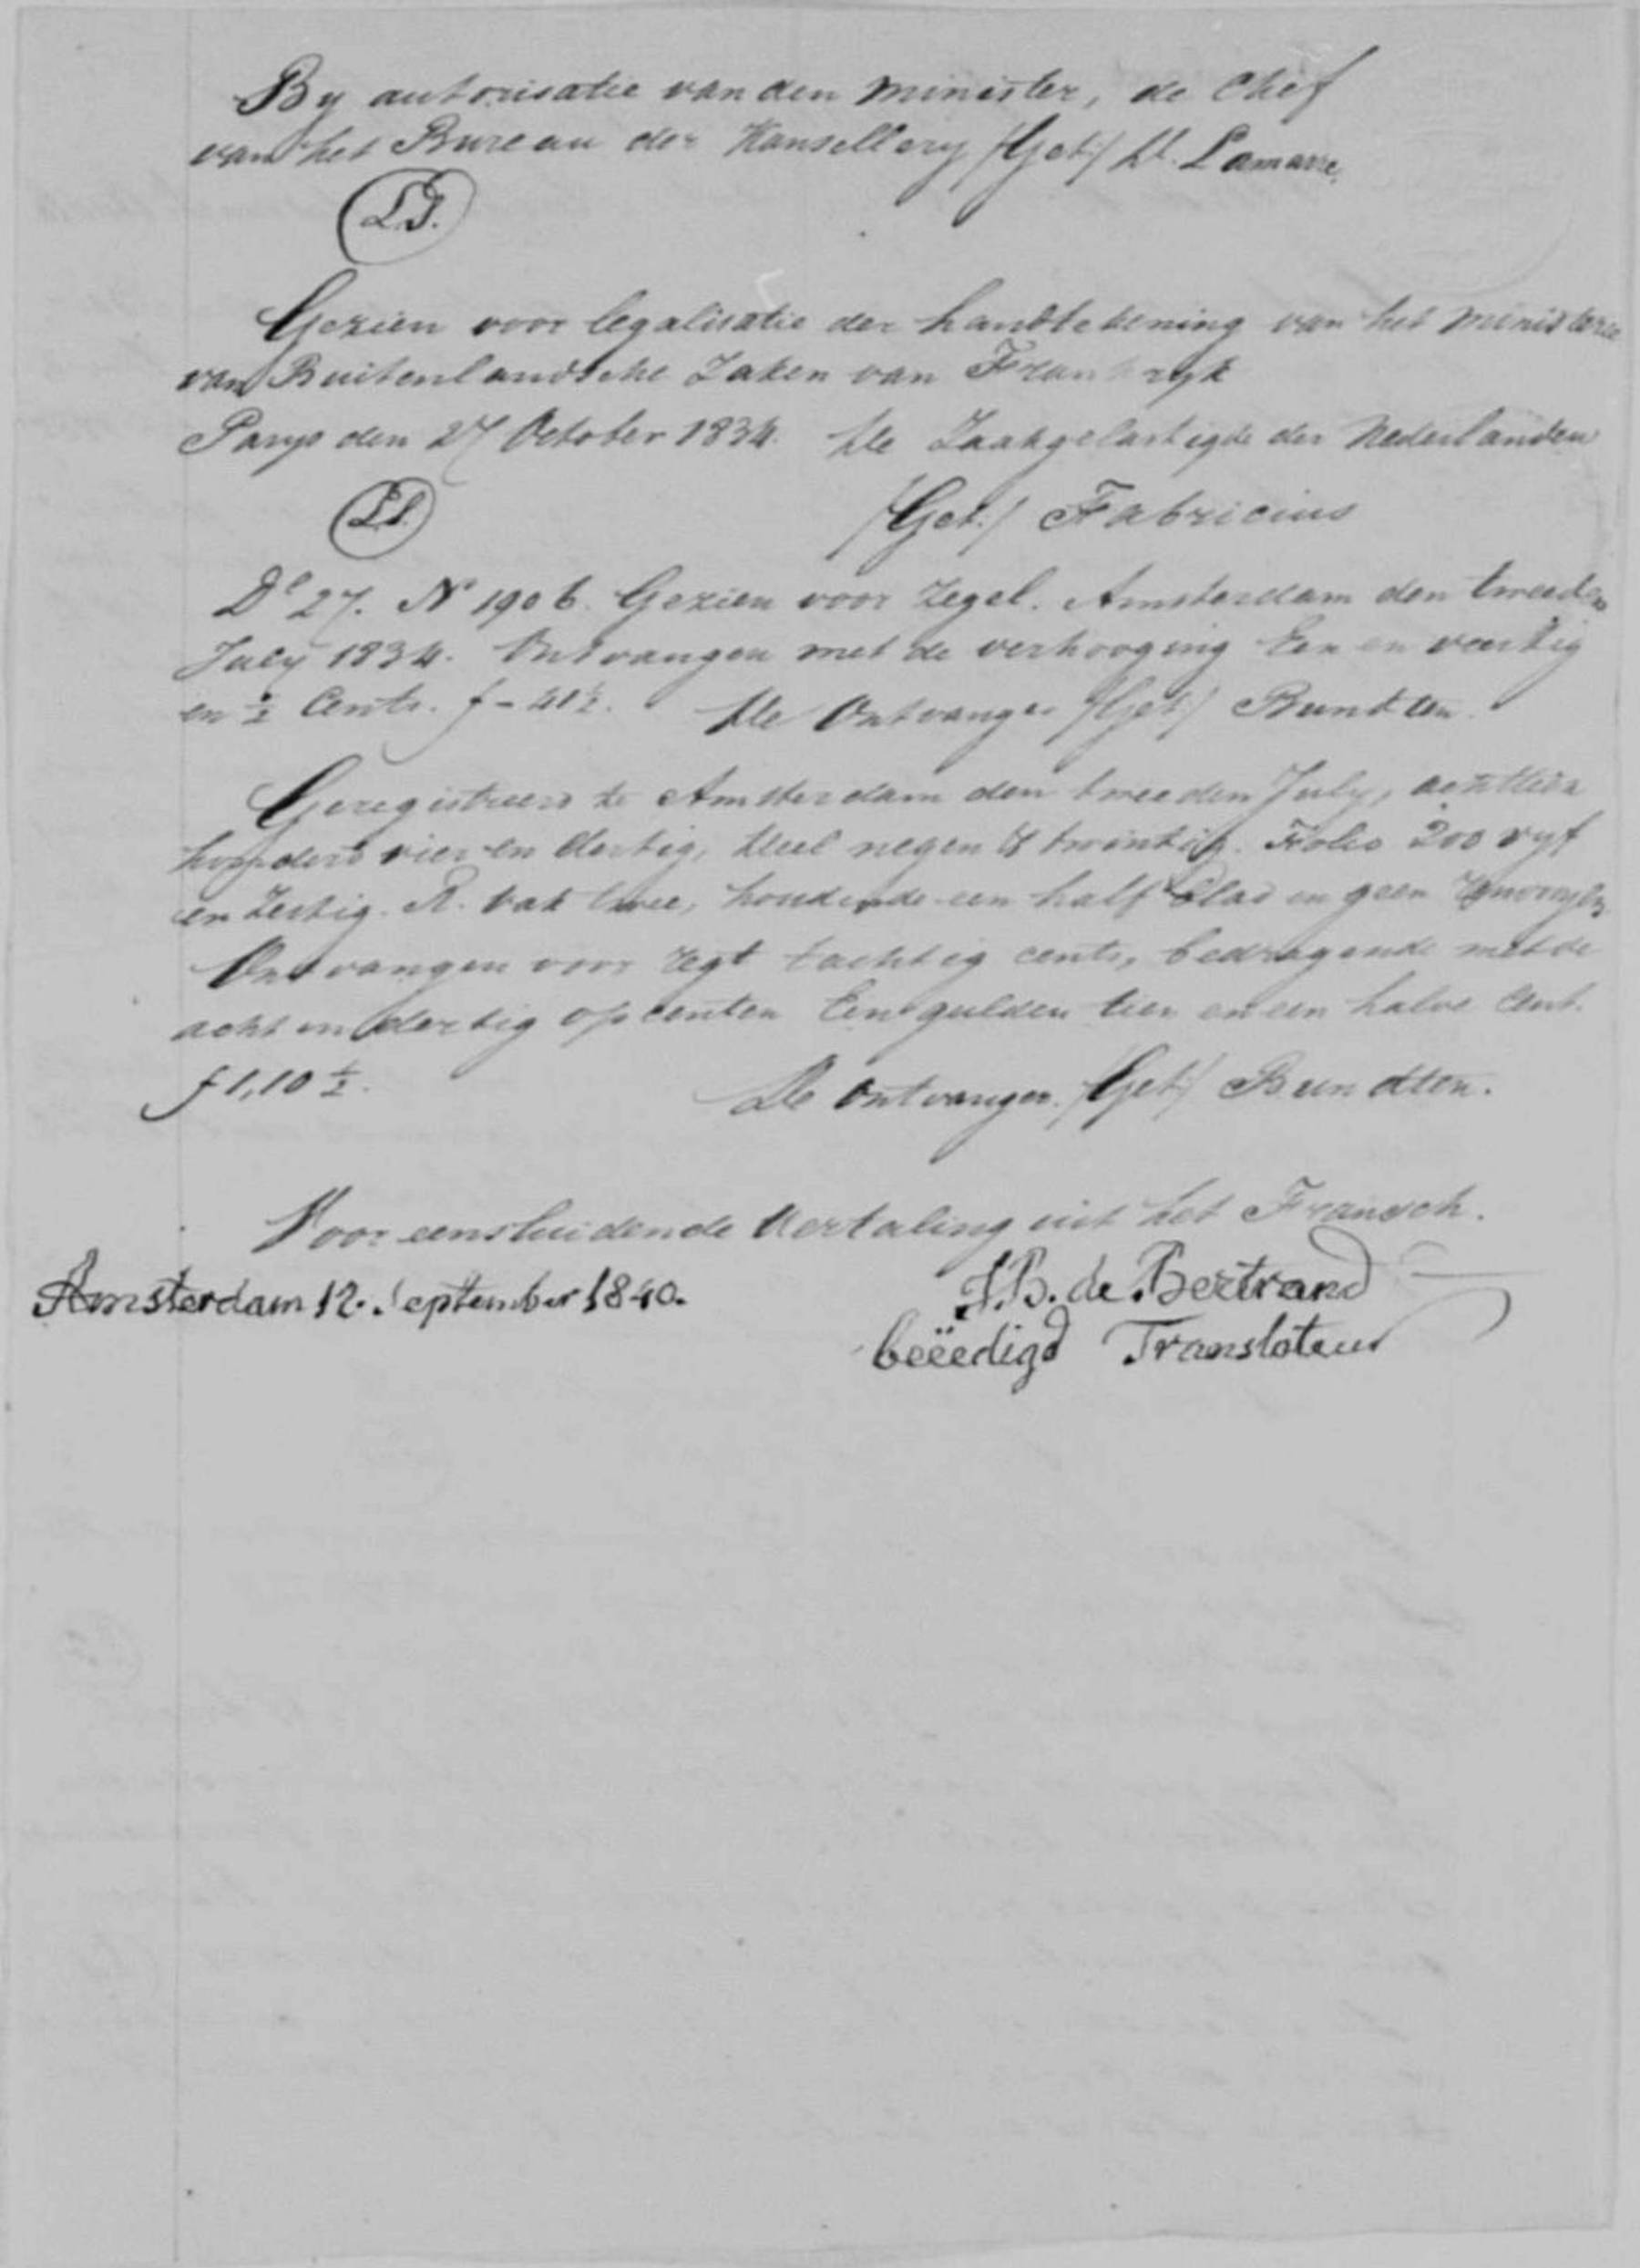 By autorisatie van den Minister, de Chef
van het Bureau der Kansellery /Get:/ Lamarre,
L.S.
Gezien voor legalisatie der handtekening van het Ministerie
van Buitenlandsche Zaken van Frankryk
Parys den 27 October 1834. De Zaakgelastigde der Nederlanden
L.S.
/Get:/ Fabricius
Dl 27. N 1906. Gezien voor Zegel. Amsterdam den tweeden
July 1834. Ontvangen met de verhooging Een en veertig
en ½ Cents. f - 41½. De Ontvanger /Get/ Bundten.
Geregistreerd te Amsterdam den tweeden July, achttien
honderd vier en dertig, deel negen & twintig. Folio 200 vyf
en Zestig. R. vak twee, houdende een half blad en geen
Ontvangen voor regt tachtig cents, bedragende met de
acht en dertig opcenten Een gulden tien en een halve Cent.
f 1,10 ½. De Ontvanger. /Get/ Bundten.
Voor eensluidende Vertaling uit het Fransch.
Amsterdam 12. September 1840. J.B. de Bertrand
beëedigd Translateur